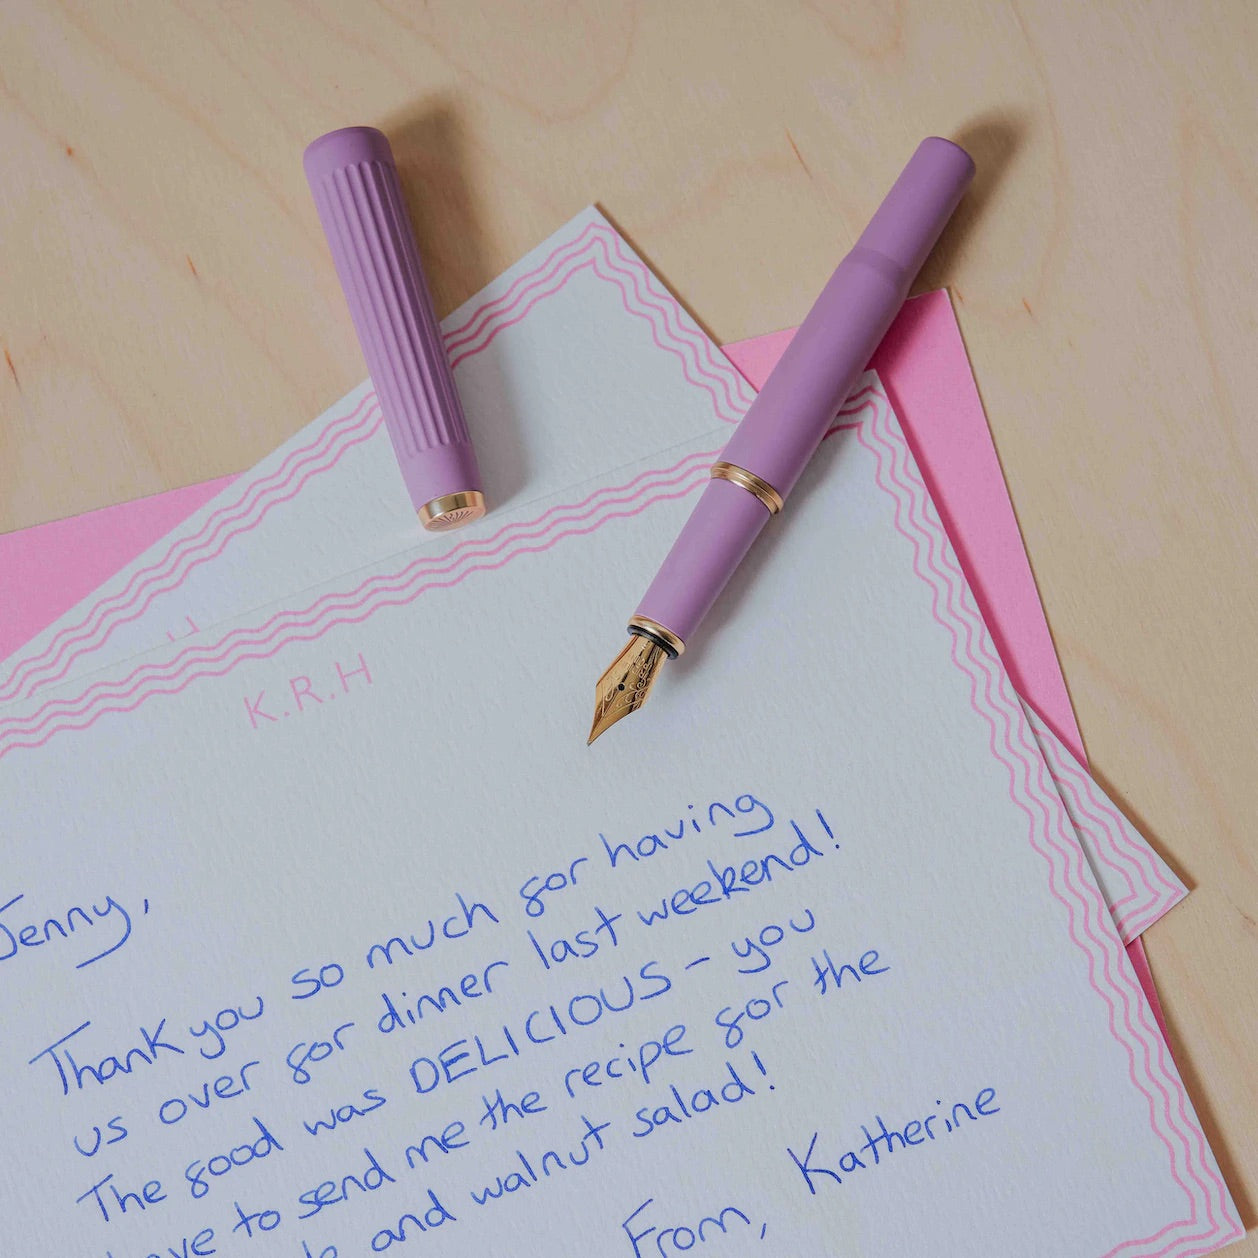 K.R.H
Jenny,
Thank you so much for having
us over for dinner last weekend!
The food was DELICIOUS – you
to send me the recipe for the
and walnut salad!
From, Katherine